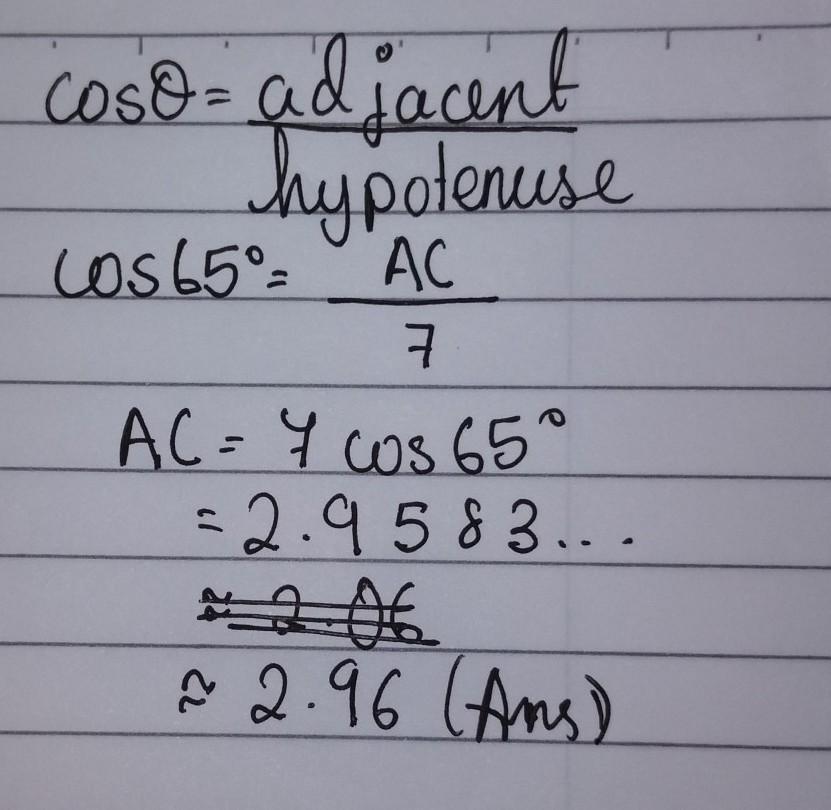 cosθ = adjacent
hypotenuse
cos65° = AC
7
AC = 7 cos 65°
= 2.9583...
≈ 2.06
≈ 2.96 (Ans)